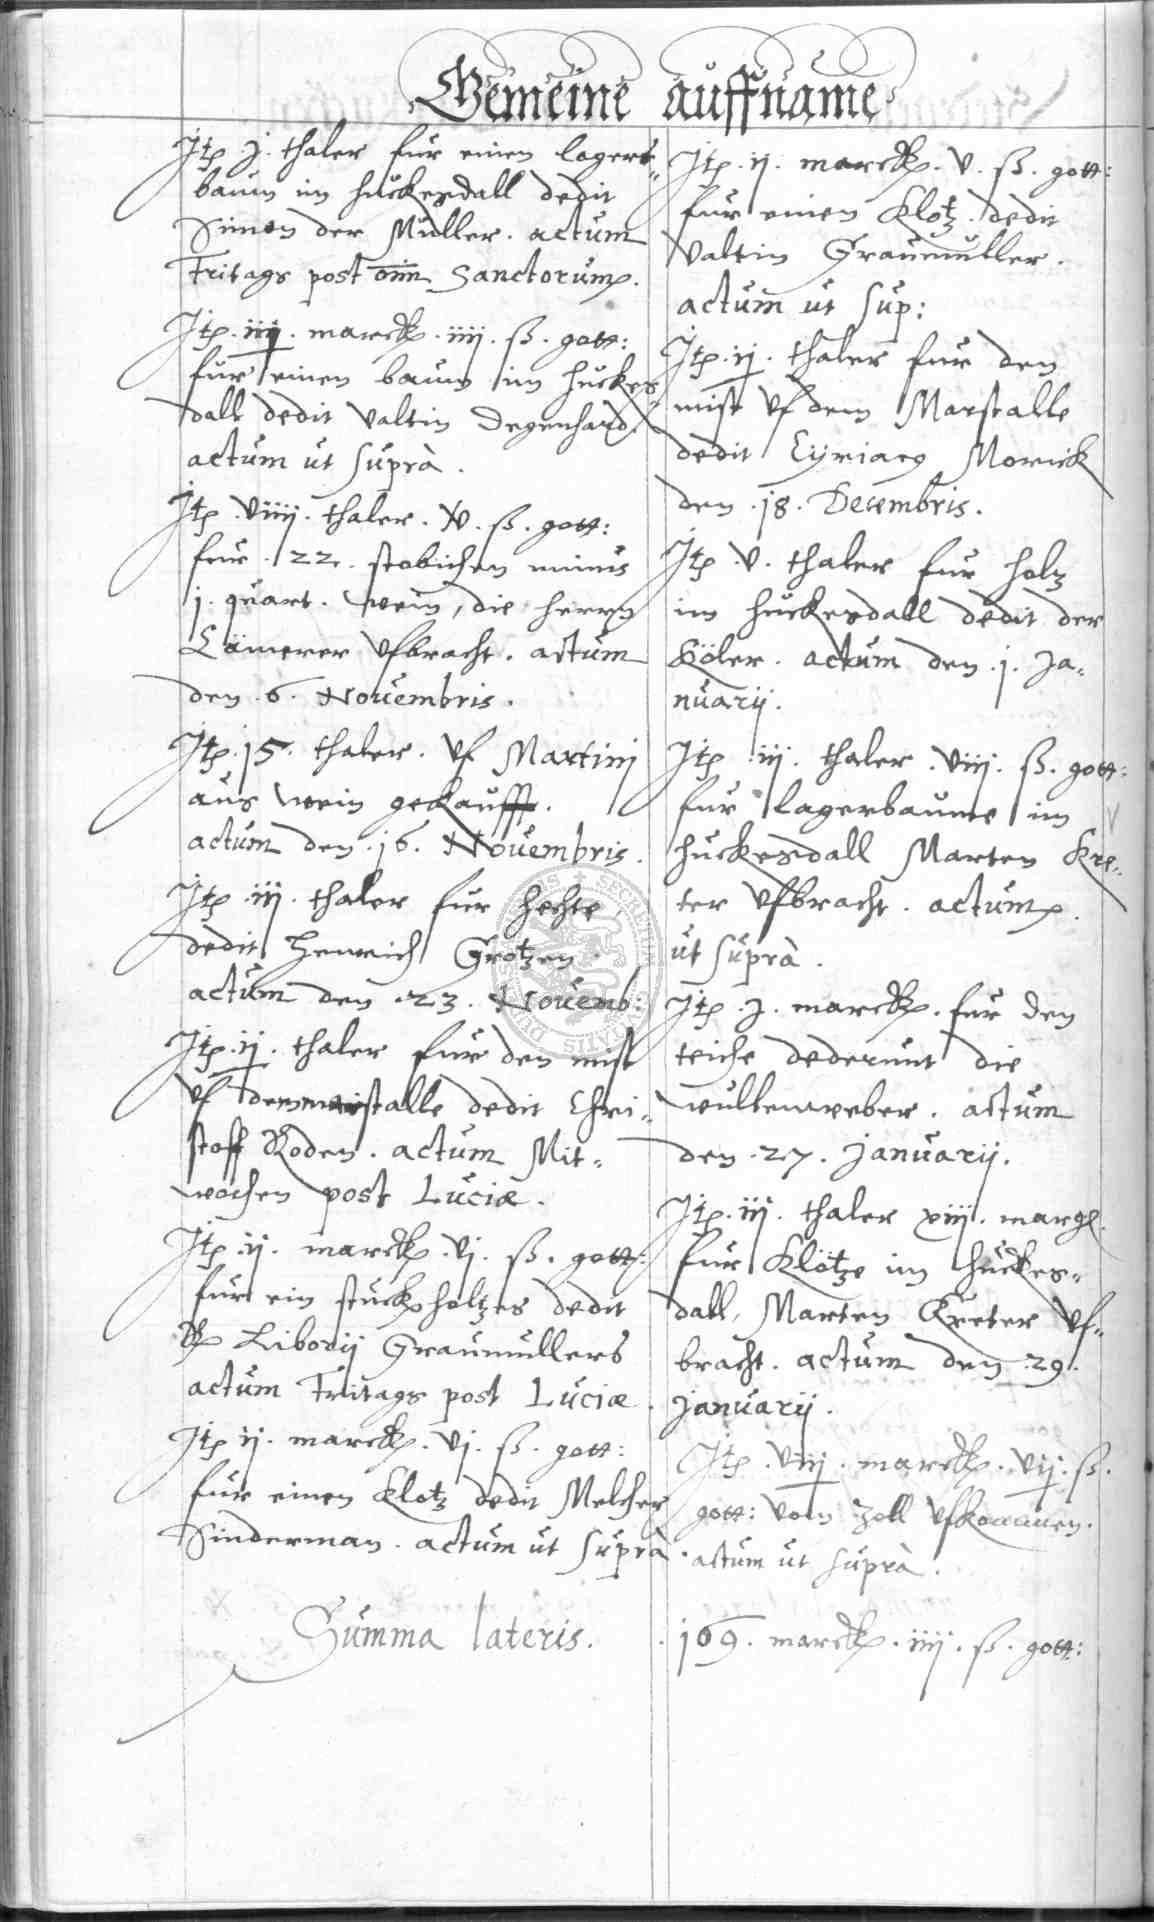 Gemeine auffname
Jtp j. thaler fur einen lagers„
baum im huckesdall dedit
Simon der Müller. actum
Fritags post om̄ Sanctorum.
Jtp. iiij. marck. iiij. ß. gott:
fur einen baum im huckes
dall dedit Valtin Degenhard.
actum ut suprà.
Jtp. viiij. thaler. xv. ß. gott:
fur. 22. stobichen minus
j. quart. wein, die herrn
Cämerer ufbracht. actum
den. 6. Novembris.
Jtp. 15. thaler. uf Martini
aus wein gekaufft.
actum den. 16. Novembris.
Jtp. iij. thaler fur hechte,
dedit Henrich Grotzen.
actum den. 23. Novemb:
Jtp. ij. thaler fur den mist
uf dem marstalle dedit Chri„
stoff Roden. actum Mit„
wochen post Luciæ.
Jtp. ij. marck. vj. ß. gott:
fur ein stuck holtzes dedit
Liborij Graumullers
actum Fritags post Luciæ.
Jtp ij. marck. vj. ß. gott:
fur einen Klotz dedit Melcher
Sinderman. actum ut suprà.
Jtp. ij. marck. v. ß. gott:
fur einen Klotz. dedit
Valtin Graumuller.
actum ut sup:
Jtp. ij. thaler fur den
mist uf dem Marstalle
dedit Cyriacg Morick
den. 18. Decembris.
Jtp. v. thaler fur holtz
im huckesdall dedit der
Köler. actum den. j. Ja„
nuarij.
Jtp. iij. thaler. viij. ß. gott:
fur lagerbaume im
huckesdall Marten Kre„
ter ufbracht. actum.
ut suprà.
Jtp. j. marck. fur den
teiche dederunt die
wullenweber. actum
den. 27. Januarij.
Jtp. iij. thaler xiij. marg.
fur Klötze im huckes„
dall, Marten Kreter uf„
bracht. actum den. 29.
Januarij.
Jtp. viij. marck. vij. ß.
gott: vom zoll ufkommen.
actum ut suprà.
Summa lateris. 169. marck. iiij. ß. gott: